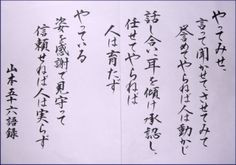 やってみせ、
言って聞かせて、させてみて
誉めてやらねば人は動かじ
話し合い、耳を傾け承認し、
任せてやらねば
人は育たず
やっている
姿を感謝で見守って
信頼せねば人は実らず
山本五十六語録